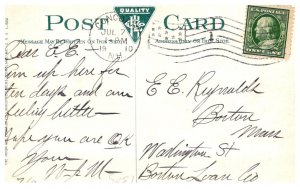 POST CARD
QUALITY
MESSAGE MAY BE WRITTEN ON THIS SIDE
ADDRESS ONLY ON THIS SIDE
JUL 7
19 10
N.Y.
U.S. POSTAGE
ONE CENT
Dear E.E.
am up here for
ten days and am
feeling better
Hope you are OK
Yours
E. E. Reynolds
Boston
Mass
Washington St
Boston Loan Co